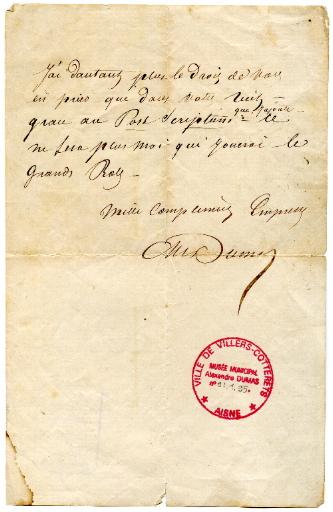 J'ai d'autant plus le droit de vous
en prier que dans votre récit
grace au Post Scriptum que j'ajoute - ce
ne sera plus moi qui jouerai le
Grands Role -
Mille Compliments Empressés
Alex Dumas
VILLE DE VILLERS-COTTERETS
MUSÉE MUNICIPAL
Alexandre DUMAS
AISNE